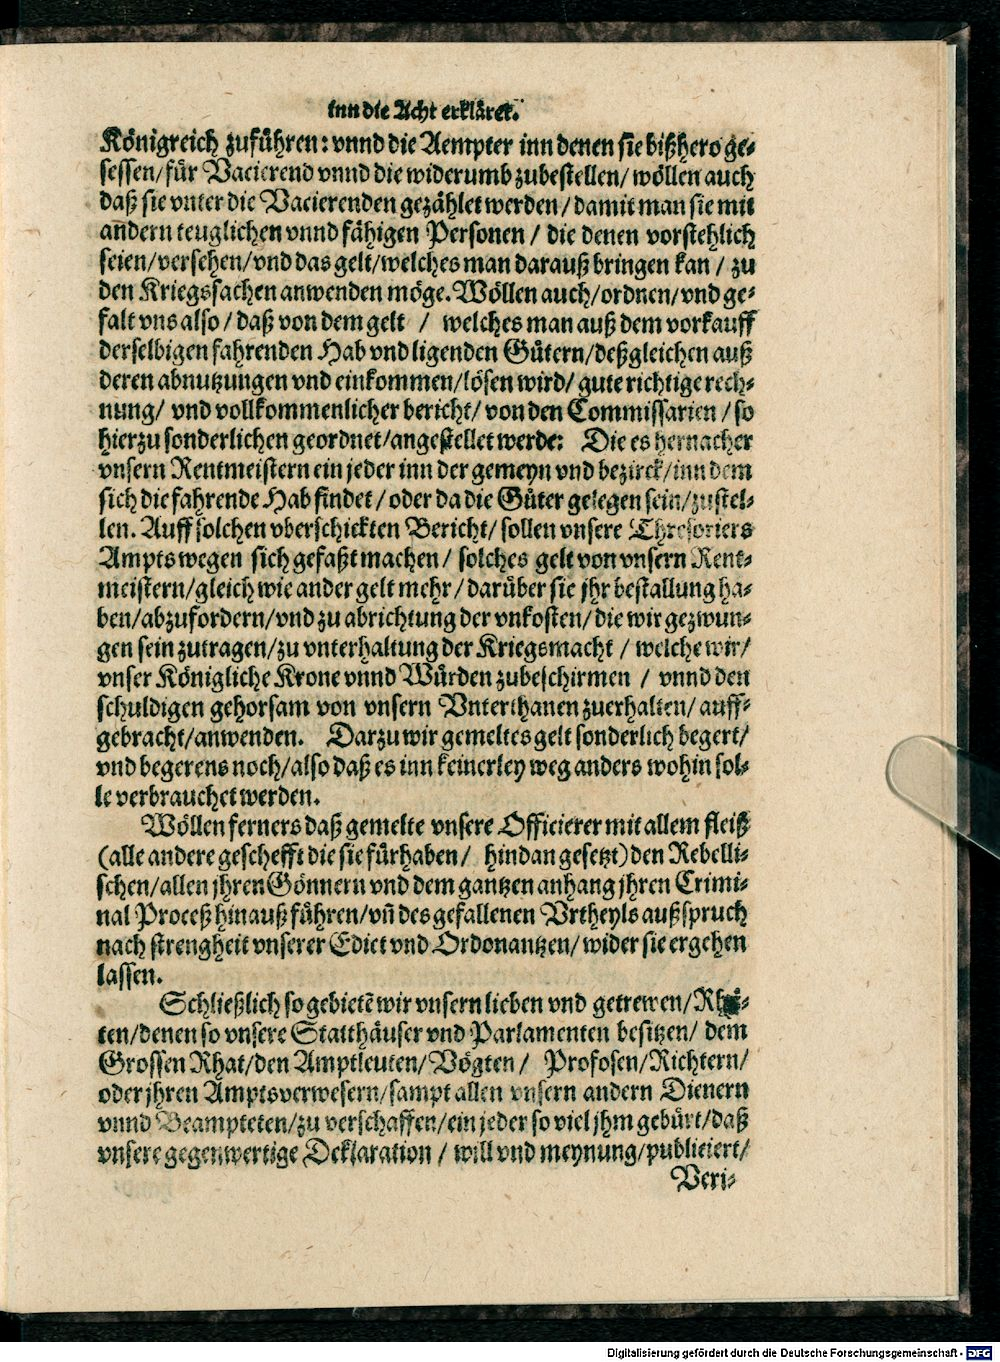 inn die Acht erkläret.
Königreich zuführen: vnnd die Aempter inn denen sie bißhero ge-
sessen/für Vacierend vnnd die widerumb zubestellen/ wöllen auch
daß sie vnter die Vacierenden gezählet werden/damit man sie mit
andern teuglichen vnnd fähigen Personen/ die denen vorstehlich
seien/versehen/vnd das gelt/welches man darauß bringen kan/ zu
den Kriegssachen anwenden möge. Wöllen auch/ordnen/vnd ge-
falt vns also/ daß von dem gelt / welches man auß dem vorkauff
derselbigen fahrenden Hab vnd ligenden Gütern/deßgleichen auß
deren abnutzungen vnd einkommen/lösen wird/ gute richtige rech-
nung/ vnd vollkommenlicher bericht/ von den Commissarien/so
hierzu sonderlichen geordnet/angestellet werde: Die es hernacher
vnsern Rentmeistern ein jeder inn der gemeyn vnd bezirck/inn dem
sich die fahrende Hab findet/ oder da die Güter gelegen sein/zustel-
len. Auff solchen vberschickten Bericht/ sollen vnsere Thresoriers
Ampts wegen sich gefaßt machen/ solches gelt von vnsern Rent-
meistern/gleich wie ander gelt mehr/ darüber sie jhr bestallung ha-
ben/abzufordern/vnd zu abrichtung der vnkosten/ die wir gezwun-
gen sein zutragen/zu vnterhaltung der Kriegsmacht / welche wir/
vnser Königliche Krone vnnd Würden zubeschirmen / vnnd den
schuldigen gehorsam von vnsern Vnterthanen zuerhalten/ auff-
gebracht/anwenden. Darzu wir gemeltes gelt sonderlich begert/
vnd begerens noch/also daß es inn keinerley weg anders wohin sol-
le verbrauchet werden.
Wöllen ferners daß gemelte vnsere Officierer mit allem fleiß
(alle andere geschefft die sie fürhaben/ hindan gesetzt) den Rebelli-
schen/allen jhren Gönnern vnd dem gantzen anhang jhren Crimi-
nal Proceß hinauß führen/vñ des gefallenen Vrtheyls außspruch
nach strengheit vnserer Edict vnd Ordonantzen/ wider sie ergehen
lassen.
Schließlich so gebietē wir vnsern lieben vnd getrewen/Rhä-
ten/denen so vnsere Statthäuser vnd Parlamenten besitzen/ dem
Grossen Rhat/den Amptleuten/Vögten/ Profosen/Richtern/
oder jhren Amptsverwesern/sampt allen vnsern andern Dienern
vnnd Beampteten/zu verschaffen/ein jeder so viel jhm gebürt/daß
vnsere gegenwertige Decklaration/ will vnd meynung/publiciert/
Veri-
Digitalisierung gefördert durch die Deutsche Forschungsgemeinschaft - DFG